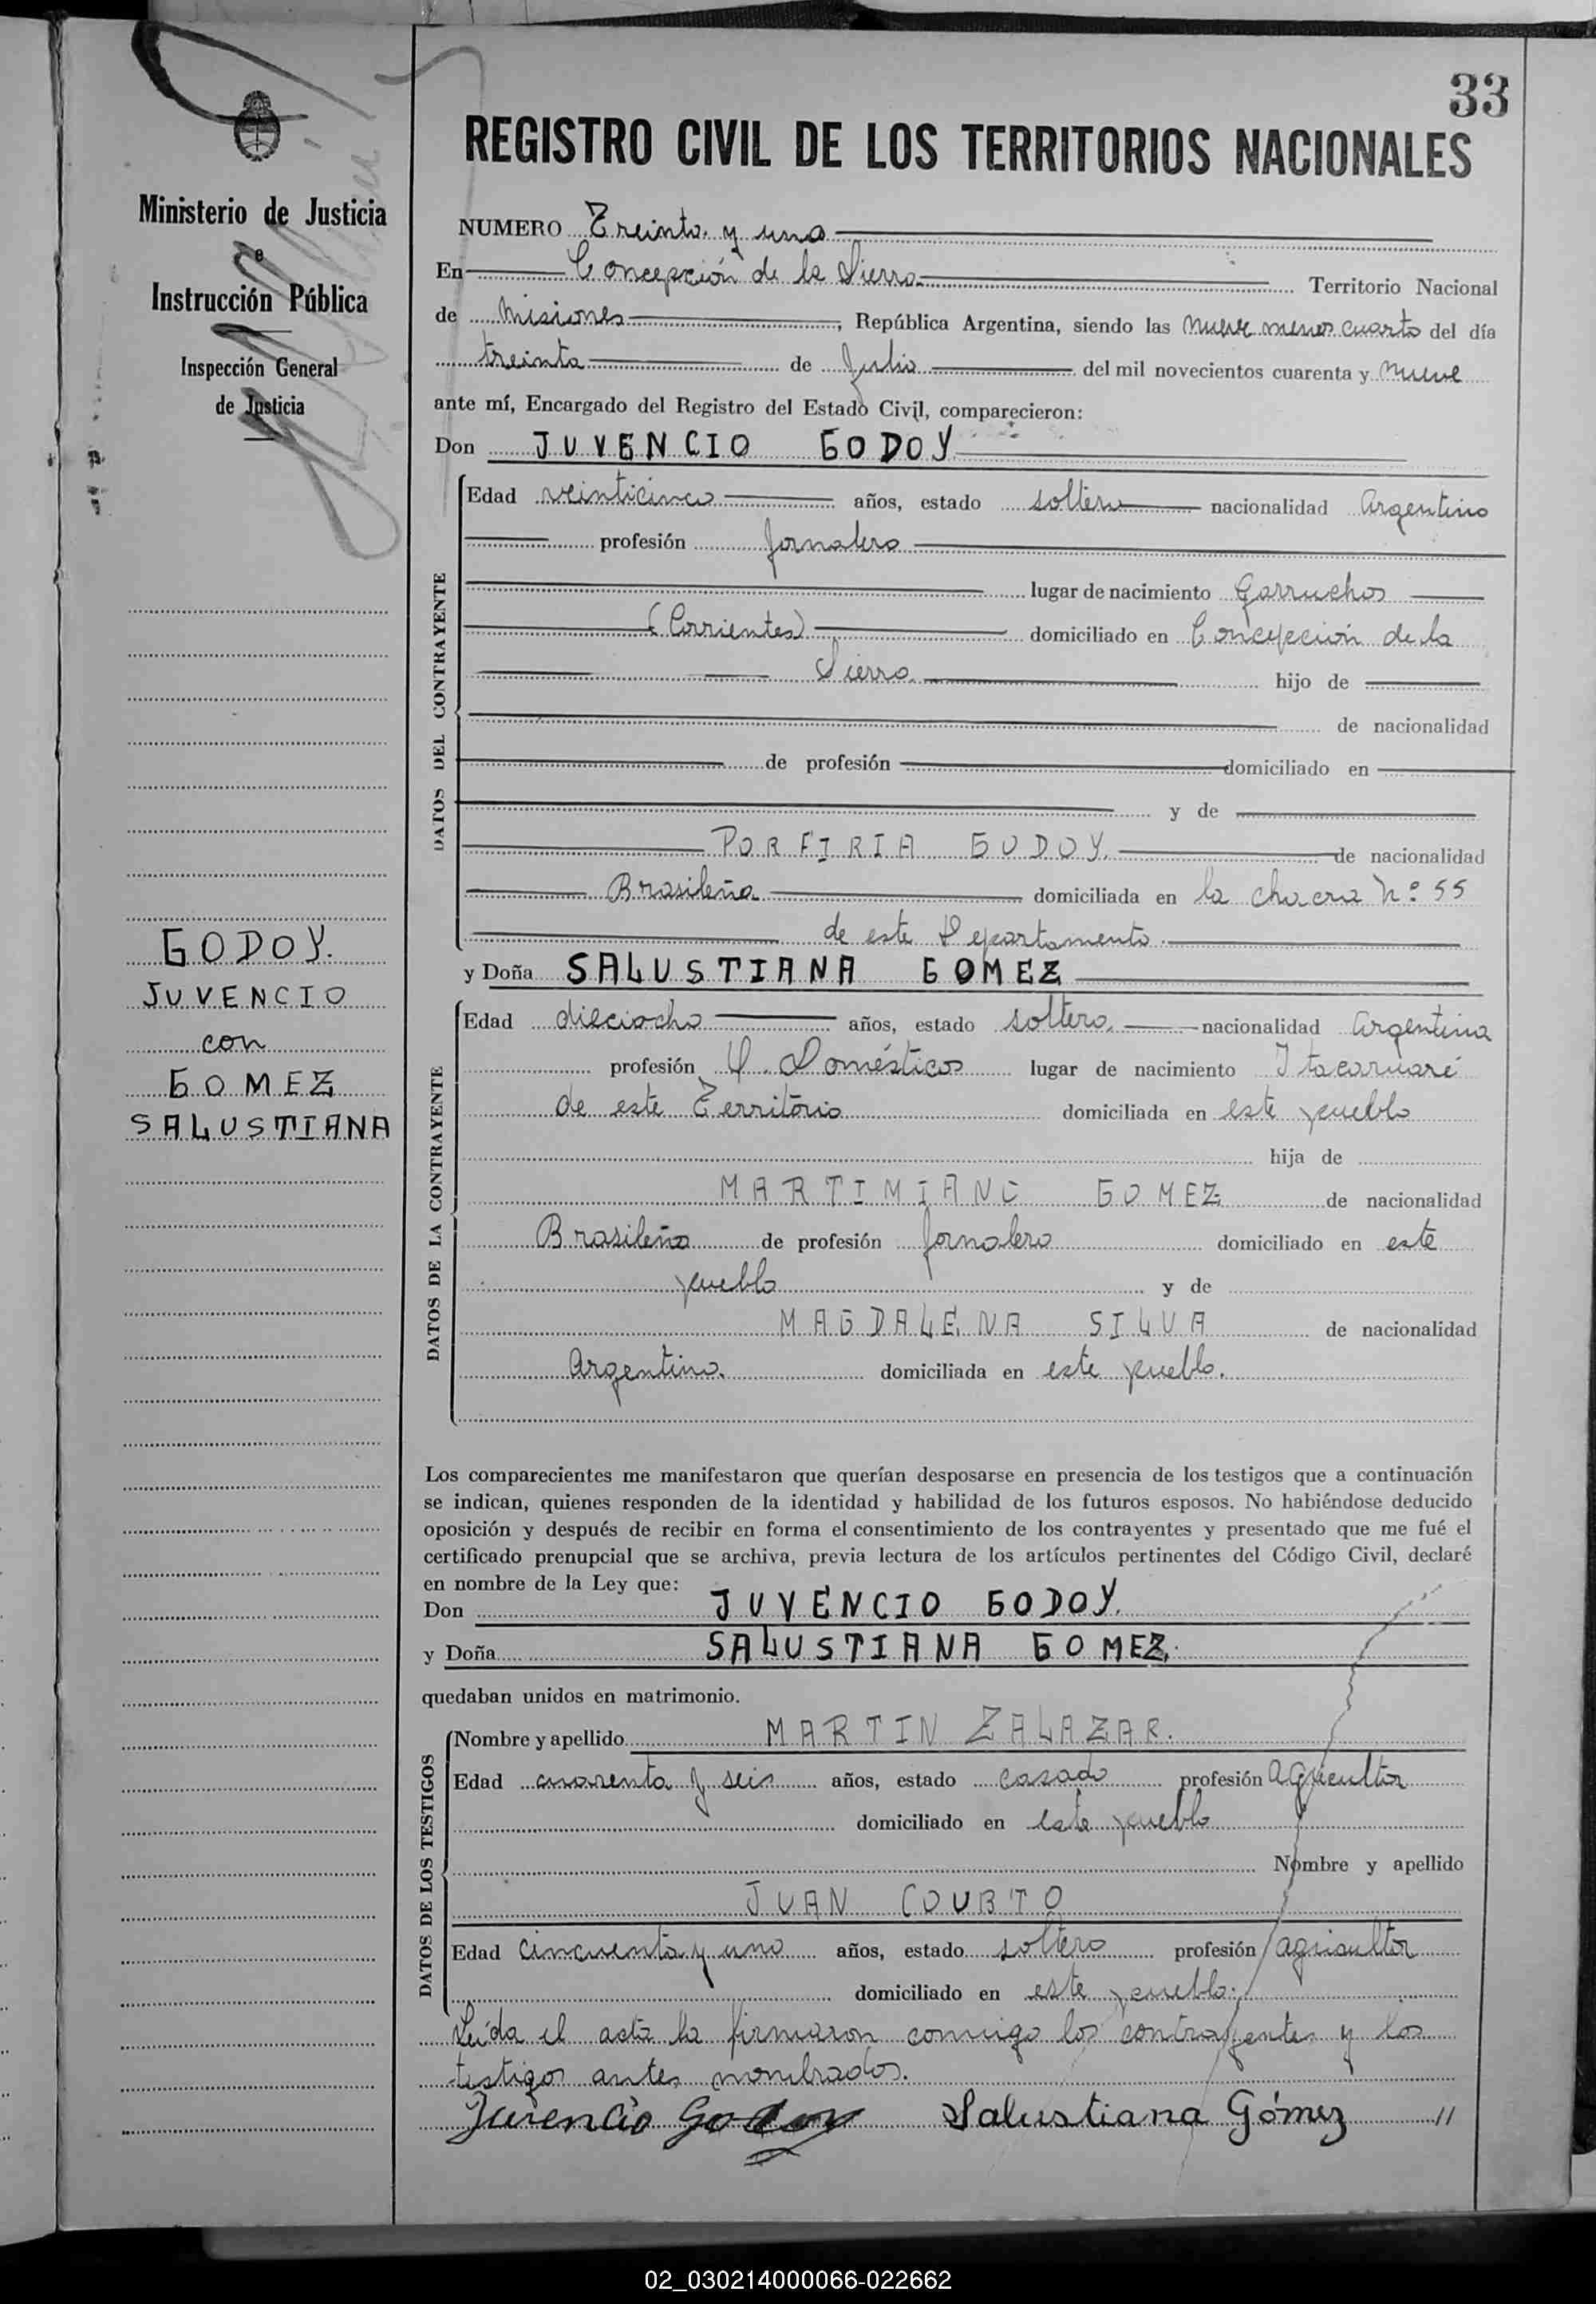 33
REGISTRO CIVIL DE LOS TERRITORIOS NACIONALES
Ministerio de Justicia
e
Instrucción Pública
Inspección General
de Justicia
NUMERO Treinta y uno
En Concepción de la Sierra Territorio Nacional
de Misiones, República Argentina, siendo las nueve menos cuarto del día
treinta de Julio del mil novecientos cuarenta y nueve
ante mí, Encargado del Registro del Estado Civil, comparecieron:
Don JUVENCIO GODOY
DATOS DEL CONTRAYENTE
Edad veinticinco años, estado soltero nacionalidad Argentino
profesión Jornalero
lugar de nacimiento Garruchos
(Corrientes) domiciliado en Concepción de la
Sierra. hijo de
de nacionalidad
de profesión domiciliado en
y de
PORFIRIA GODOY. de nacionalidad
Brasileña domiciliada en la chacra Nº 55
de este Departamento.
GODOY.
JUVENCIO
con
GOMEZ
SALUSTIANA
y Doña SALUSTIANA GOMEZ
DATOS DE LA CONTRAYENTE
Edad dieciocho años, estado soltera. nacionalidad Argentina
profesión Q. Domésticos lugar de nacimiento Itacaruaré
de este Territorio domiciliada en este pueblo
hija de
MARTIMIANO GOMEZ de nacionalidad
Brasileño de profesión Jornalero domiciliado en este
pueblo y de
MAGDALENA SILVA de nacionalidad
Argentina. domiciliada en este pueblo.
Los comparecientes me manifestaron que querían desposarse en presencia de los testigos que a continuación
se indican, quienes responden de la identidad y habilidad de los futuros esposos. No habiéndose deducido
oposición y después de recibir en forma el consentimiento de los contrayentes y presentado que me fué el
certificado prenupcial que se archiva, previa lectura de los artículos pertinentes del Código Civil, declaré
en nombre de la Ley que:
Don JUVENCIO GODOY.
y Doña SALUSTIANA GOMEZ.
quedaban unidos en matrimonio.
DATOS DE LOS TESTIGOS
Nombre y apellido MARTIN ZALAZAR.
Edad cuarenta y seis años, estado casado profesión agricultor
domiciliado en este pueblo
Nombre y apellido
JUAN COUBTO
Edad cincuenta y uno años, estado soltero profesión agricultor
domiciliado en este pueblo.
Leída el acta la firmaron conmigo los contrayentes y los
testigos antes nombrados.
Juvencio Godoy Salustiana Gómez //
02_030214000066-022662